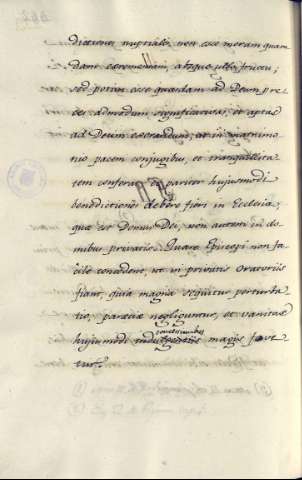 dictiones nuptiales non esse meram quam
dam caeremoniam, absque ullo fructu;
sed potius esse quasdam ad Deum pre
ces admodum significativas, et aptas
ad Deum exorandum, ut in matrimo
nio pacem conjugibus, et tranquillita
tem conferat; et pariter hujusmodi
benedictiones debere fieri in Ecclesia,
quae est Domus Dei, non autem in do
mibus privatis. Quare Episcopi non fa
cile concedant, ut in privatis Oratoriis
fiant, quia magna sequitur perturba
tio, paretiae negliguntur, et vanitas
concessionibus
hujusmodi indulgentiis magis fove
tur.